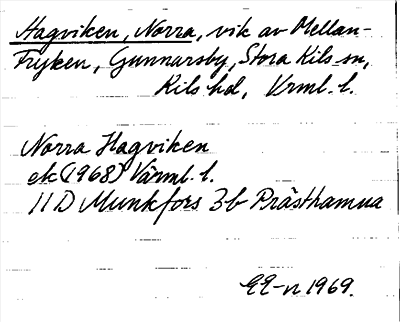 Hagviken, Norra, vik av Mellan-
Fryken, Gunnarsby, Stora Kils sn,
Kils hd, Vrml. l.
Norra Hagviken
ek (1968) Värml. l.
11D Munkfors 3b Prästhamna
EE-n 1969.